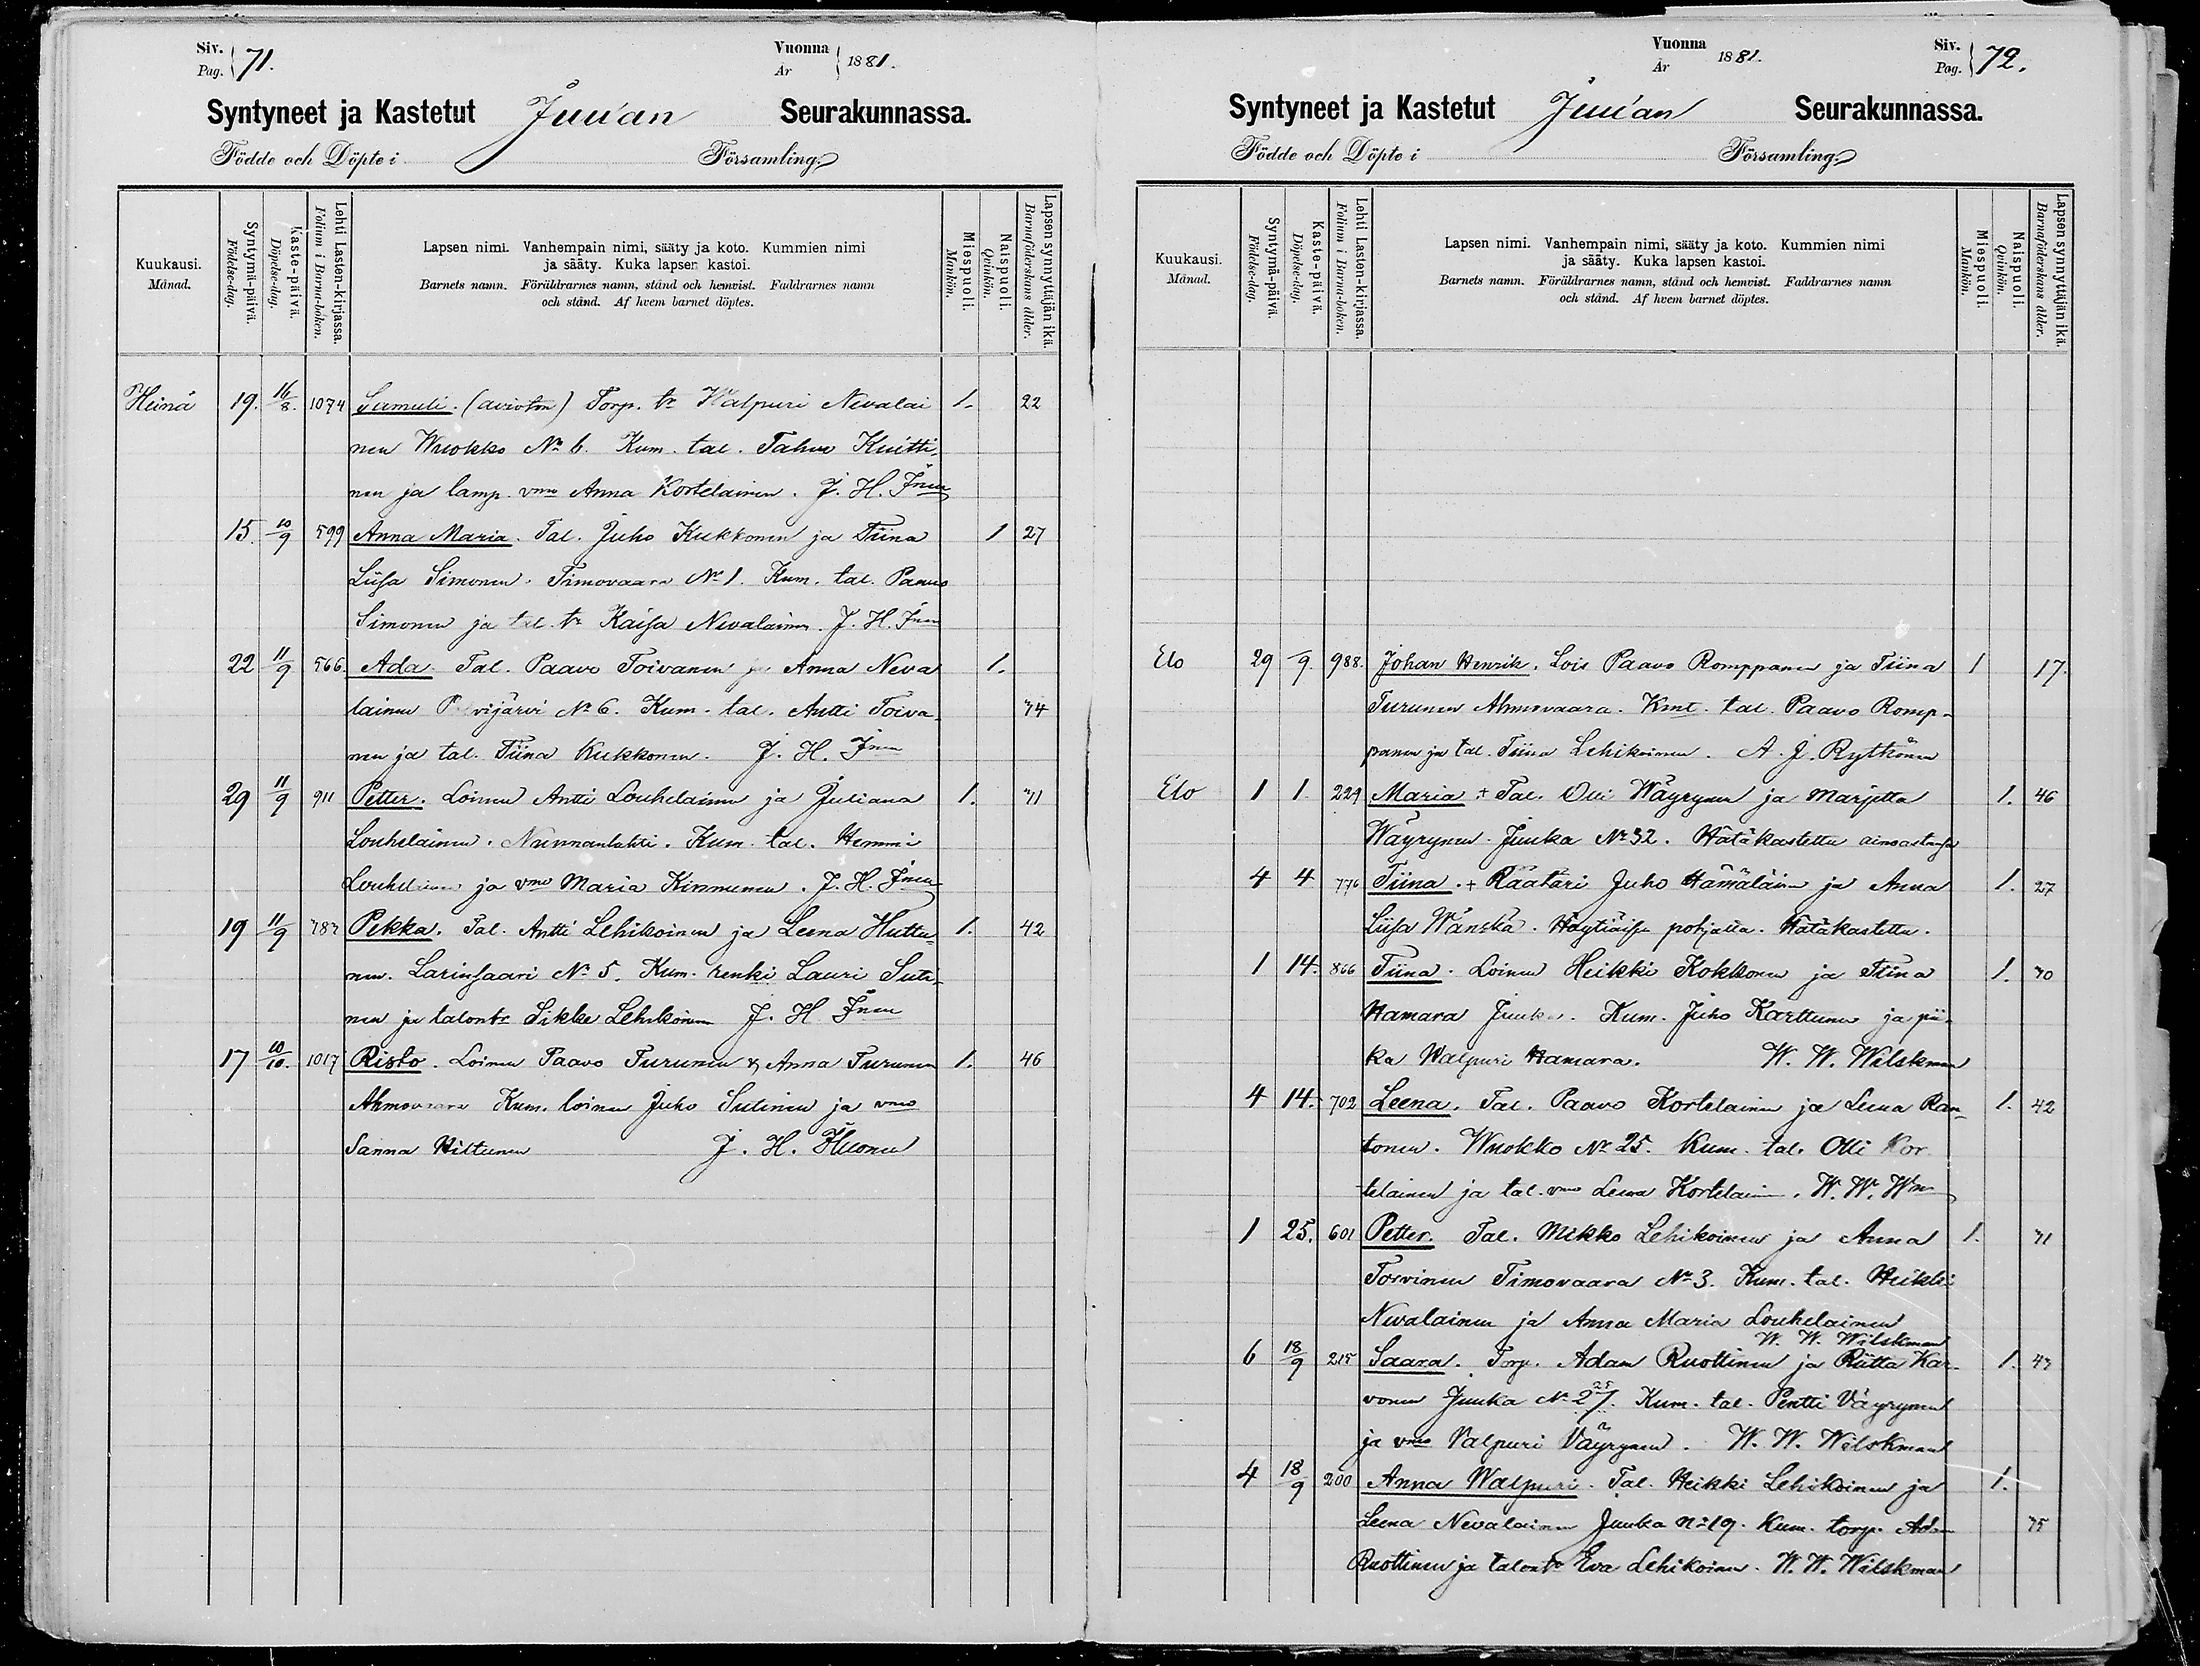 Siv. Pag. 71.
Vuonna År 1881.
Syntyneet ja Kastetut Juu'an Seurakunnassa.
Födde och Döpte i Församling.
Kuukausi. Månad.
Syntymä-päivä. Födelse-dag.
Kaste-päivä. Döpelse-dag.
Lehti Lasten-kirjassa. Folium i Barna-boken.
Lapsen nimi. Vanhempain nimi, sääty ja koto. Kummien nimi
ja sääty. Kuka lapsen kastoi.
Barnets namn. Föräldrarnes namn, stånd och hemvist. Faddrarnes namn
och stånd. Af hvem barnet döptes.
Miespuoli. Mankön.
Naispuoli. Qvinkön.
Lapsen synnyttäjän ikä. Barnaföderskans ålder.
Heinä 19. 16/8. 1074 Samuli. (avioton) Torp. tr Walpuri Nevalai 1. 22
nen Wuokko No 6. Kum. tal. Tahvo Kuitti-
nen ja lamp. vmo Anna Kortelainen. J. H. Inen
15. 10/9 599 Anna Maria. Tal. Juho Kukkonen ja Tiina 1 27
Liisa Simonen. Timovaara No 1. Kum. tal. Paavo
Simonen ja tal. tr Kaisa Nevalainen. J. H. Inen
22 11/9 566. Ada. Tal. Paavo Toivanen ja Anna Neva 1.
lainen Polvijärvi No 6. Kum. tal. Antti Toiva- 34
nen ja tal. Tiina Kukkonen. J. H. Inen
29 11/9 911 Petter. Loinen Antti Louhelainen ja Juliana 1. 31
Louhelainen. Nunnanlahti. Kum. tal. Hemmi
Louhelainen ja vmo Maria Kinnunen. J. H. Inen
19 11/9 783 Pekka. Tal. Antti Lehikoinen ja Leena Huttu- 1. 42
nen. Larinsaari No 5. Kum. renki Lauri Suti-
nen ja talontr Sikke Lehikoinen J. H. Inen
17 10/10. 1017 Risto. Loinen Paavo Turunen & Anna Turunen 1. 46
Ahmovaara Kum. loinen Juho Sutinen ja vmo
Sanna Hiltunen J. H. Ihuonen
Vuonna År 1881.
Siv. Pag. 72.
Syntyneet ja Kastetut Juu'an Seurakunnassa.
Födde och Döpte i Församling.
Kuukausi. Månad.
Syntymä-päivä. Födelse-dag.
Kaste-päivä. Döpelse-dag.
Lehti Lasten-kirjassa. Folium i Barna-boken.
Lapsen nimi. Vanhempain nimi, sääty ja koto. Kummien nimi
ja sääty. Kuka lapsen kastoi.
Barnets namn. Föräldrarnes namn, stånd och hemvist. Faddrarnes namn
och stånd. Af hvem barnet döptes.
Miespuoli. Mankön.
Naispuoli. Qvinkön.
Lapsen synnyttäjän ikä. Barnaföderskans ålder.
Elo 29 9. 988. Johan Henrik. Lois Paavo Romppanen ja Tiina 1 17.
Turunen Ahmovaara. Kmt. tal. Paavo Romp-
panen ja tal. Tiina Lehikoinen. A. J. Rytkönen
Elo 1 1. 229 Maria + Tal. Olli Wäyrynen ja Marjetta 1. 46
Wäyrynen. Juuka No 32. Hätäkastettu ainoastansa
4 4 776 Tiina. + Räätäri Juho Hämäläinen ja Anna 1. 27
Liisa Wänskä. Höytiäisen pohjalla. Hätäkastettu.
1 14. 866 Tiina. Loinen Heikki Kokkonen ja Tiina 1. 30
Hamara Juuka. Kum. Juho Karttunen ja pii-
ka Walpuri Hamara. W. W. Wilskman
4 14. 702 Leena. Tal. Paavo Kortelainen ja Leena Ran- 1. 42
tonen. Wuokko No 25. Kum. tal. Olli Kor
telainen ja tal. vmo Leena Kortelainen. W. W. Wn
1 25. 601 Petter. Tal. Mikko Lehikoinen ja Anna 1. 31
Torvinen Timovaara No 3. Kum. tal. Heikki
Nevalainen ja Anna Maria Louhelainen
W. W. Wilskman
6 18/9 215 Saara. Torp. Adam Ruottinen ja Riitta Kar- 1. 43
vonen Juuka No 27. 25 Kum. tal. Pentti Väyrynen
ja vmo Valpuri Väyrynen. W. W. Wilskman
4 18/9 200 Anna Walpuri. Tal. Heikki Lehikoinen ja 1.
Leena Nevalainen Juuka No 19. Kum. torp. Adam 35
Ruottinen ja talontr Eva Lehikoinen. W. W. Wilskman